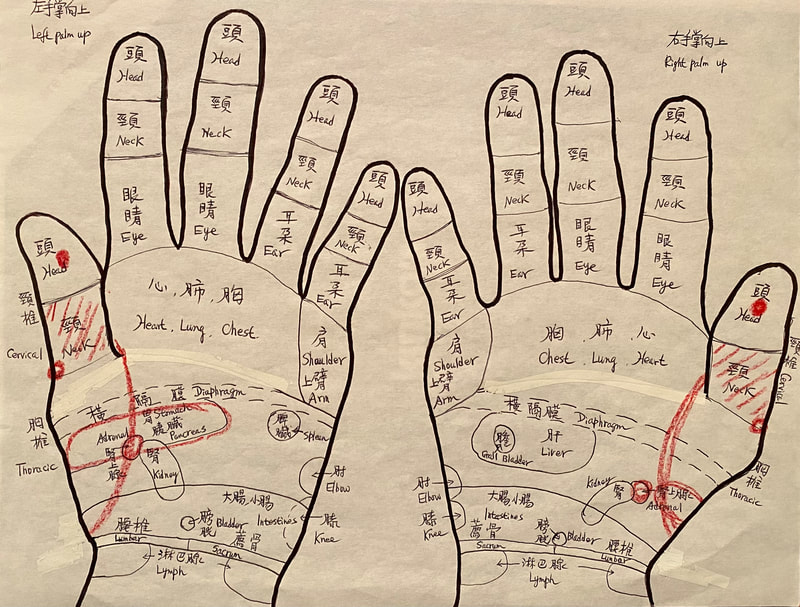 左手掌向上
Left palm up
頭
Head
頸
Neck
眼
睛
Eye
頭
Head
頸
Neck
眼
睛
Eye
頭
Head
頸
Neck
耳
朵
Ear
頭
Head
頸
Neck
耳
朵
Ear
頭
Head
頸
椎
Cervical
頸
Neck
心, 肺, 胸
Heart, Lung, Chest
肩
Shoulder
上臂
Arm
橫 隔 膜 Diaphragm
胸
椎
Thoracic
胃 Stomach
胰臟 Pancreas
Adrenal
腎上腺
腎
Kidney
脾
臟
Spleen
肘
Elbow
大腸小腸
Intestines
膝
Knee
腰椎
Lumbar
膀
胱
Bladder
薦骨
Sacrum
淋巴腺
Lymph
右手掌向上
Right palm up
頭
Head
頸
Neck
耳
朵
Ear
頭
Head
頸
Neck
耳
朵
Ear
頭
Head
頸
Neck
眼
睛
Eye
頭
Head
頸
Neck
眼
睛
Eye
頭
Head
頸
椎
Cervical
頸
Neck
胸 肺 心
Chest Lung Heart
肩
Shoulder
上臂
Arm
橫隔膜
Diaphragm
膽
Gall Bladder
肝
Liver
胸
椎
Thoracic
Kidney
腎
腎上腺
Adrenal
肘
Elbow
膝
Knee
大腸小腸
Intestines
薦骨
Sacrum
膀
胱
Bladder
腰椎
Lumbar
淋巴腺
Lymph